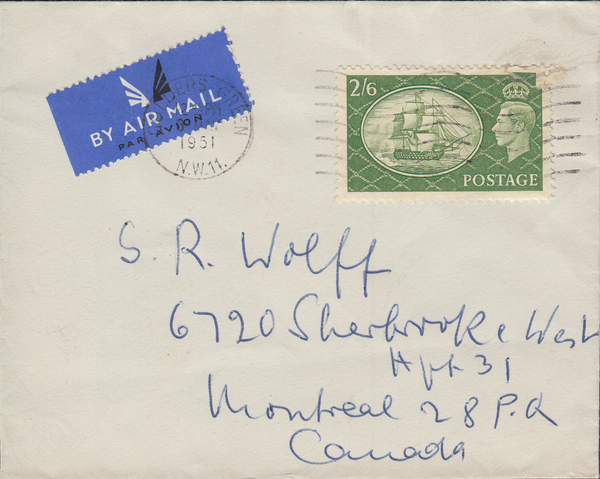 BY AIR MAIL
PAR AVION
1951
N.W.11.
2/6
POSTAGE
S. R. Wolff
6720 Sherbrooke West
Apt 31
Montreal 28 P.Q
Canada